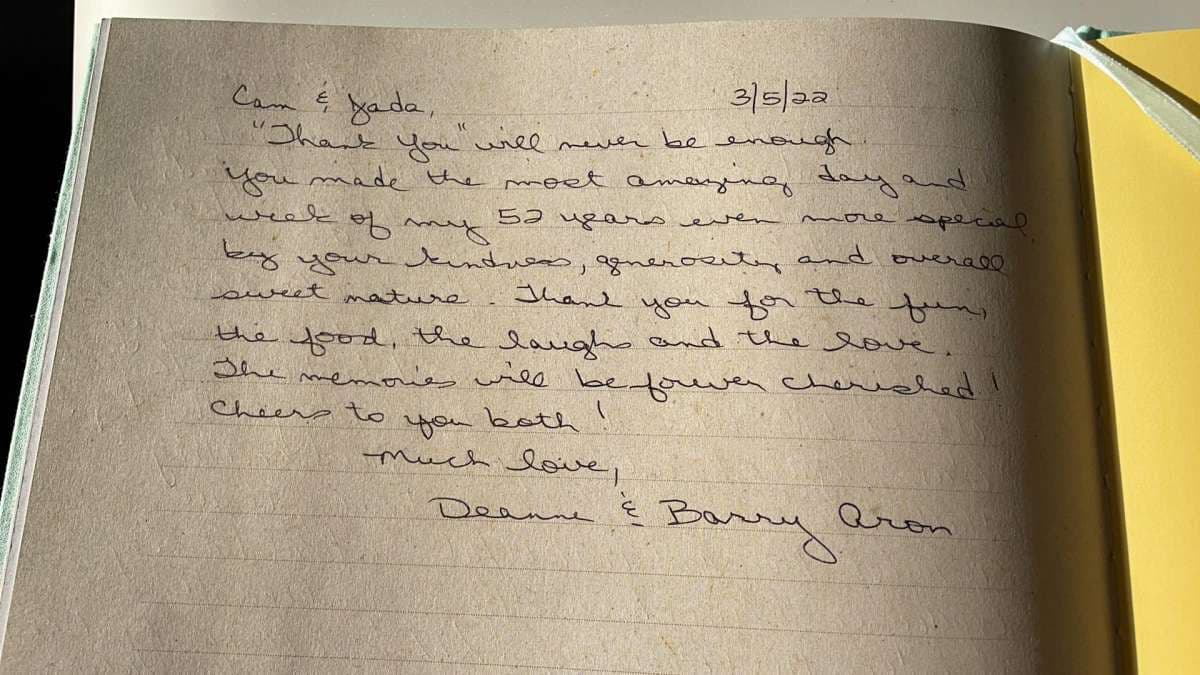 Cam & Jada, 3/5/22
"Thank you" will never be enough.
You made the most amazing day and
week of my 52 years even more special
by your kindness, generosity and overall
sweet nature. Thank you for the fun,
the food, the laughs and the love.
The memories will be forever cherished!
Cheers to you both!
Much love,
Deanne & Barry Aron